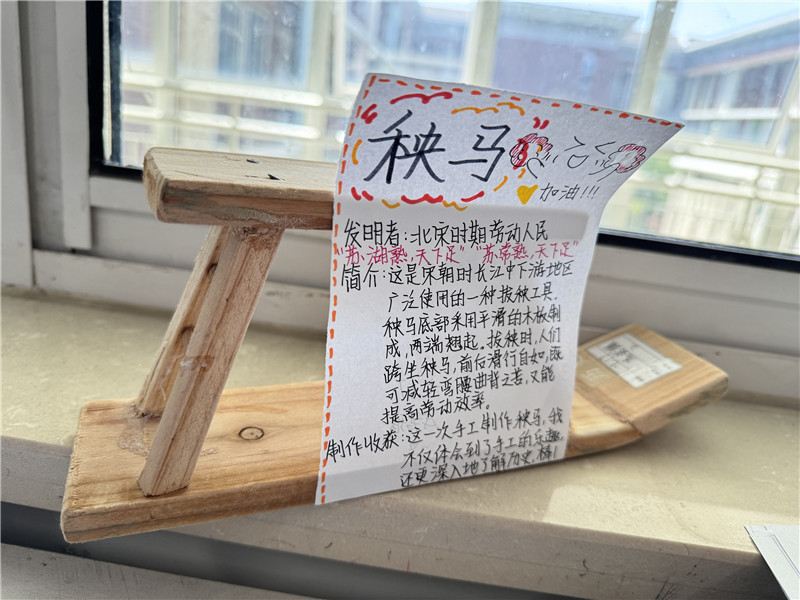 秧马
加油!!!
发明者:北宋时期劳动人民
"苏湖熟,天下足""苏常熟,天下足"
简介:这是宋朝时长江中下游地区
广泛使用的一种拔秧工具.
秧马底部采用平滑的木板制
成,两端翘起。拔秧时,人们
跨坐秧马,前后滑行自如,既
可减轻弯腰曲背之苦,又能
提高劳动效率。
制作收获:这一次手工制作秧马,我
不仅体会到了手工的乐趣,
还更深入地了解历史,棒!